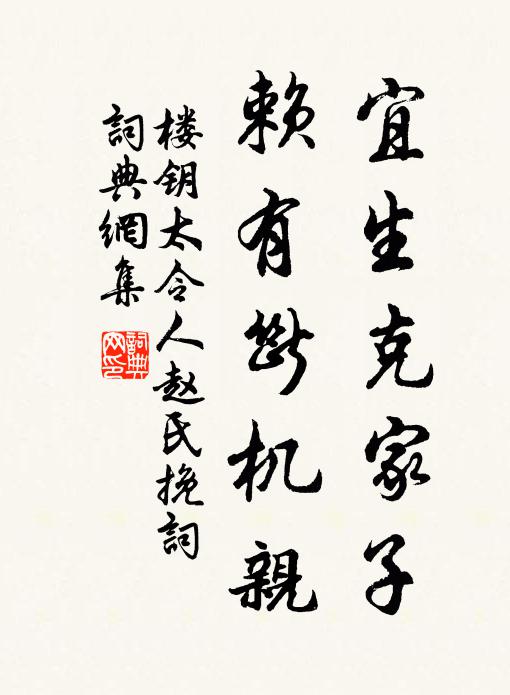 宜生克家子
赖有断机親
楼钥太令人赵氏挽詞
詞典網集
詞典網印